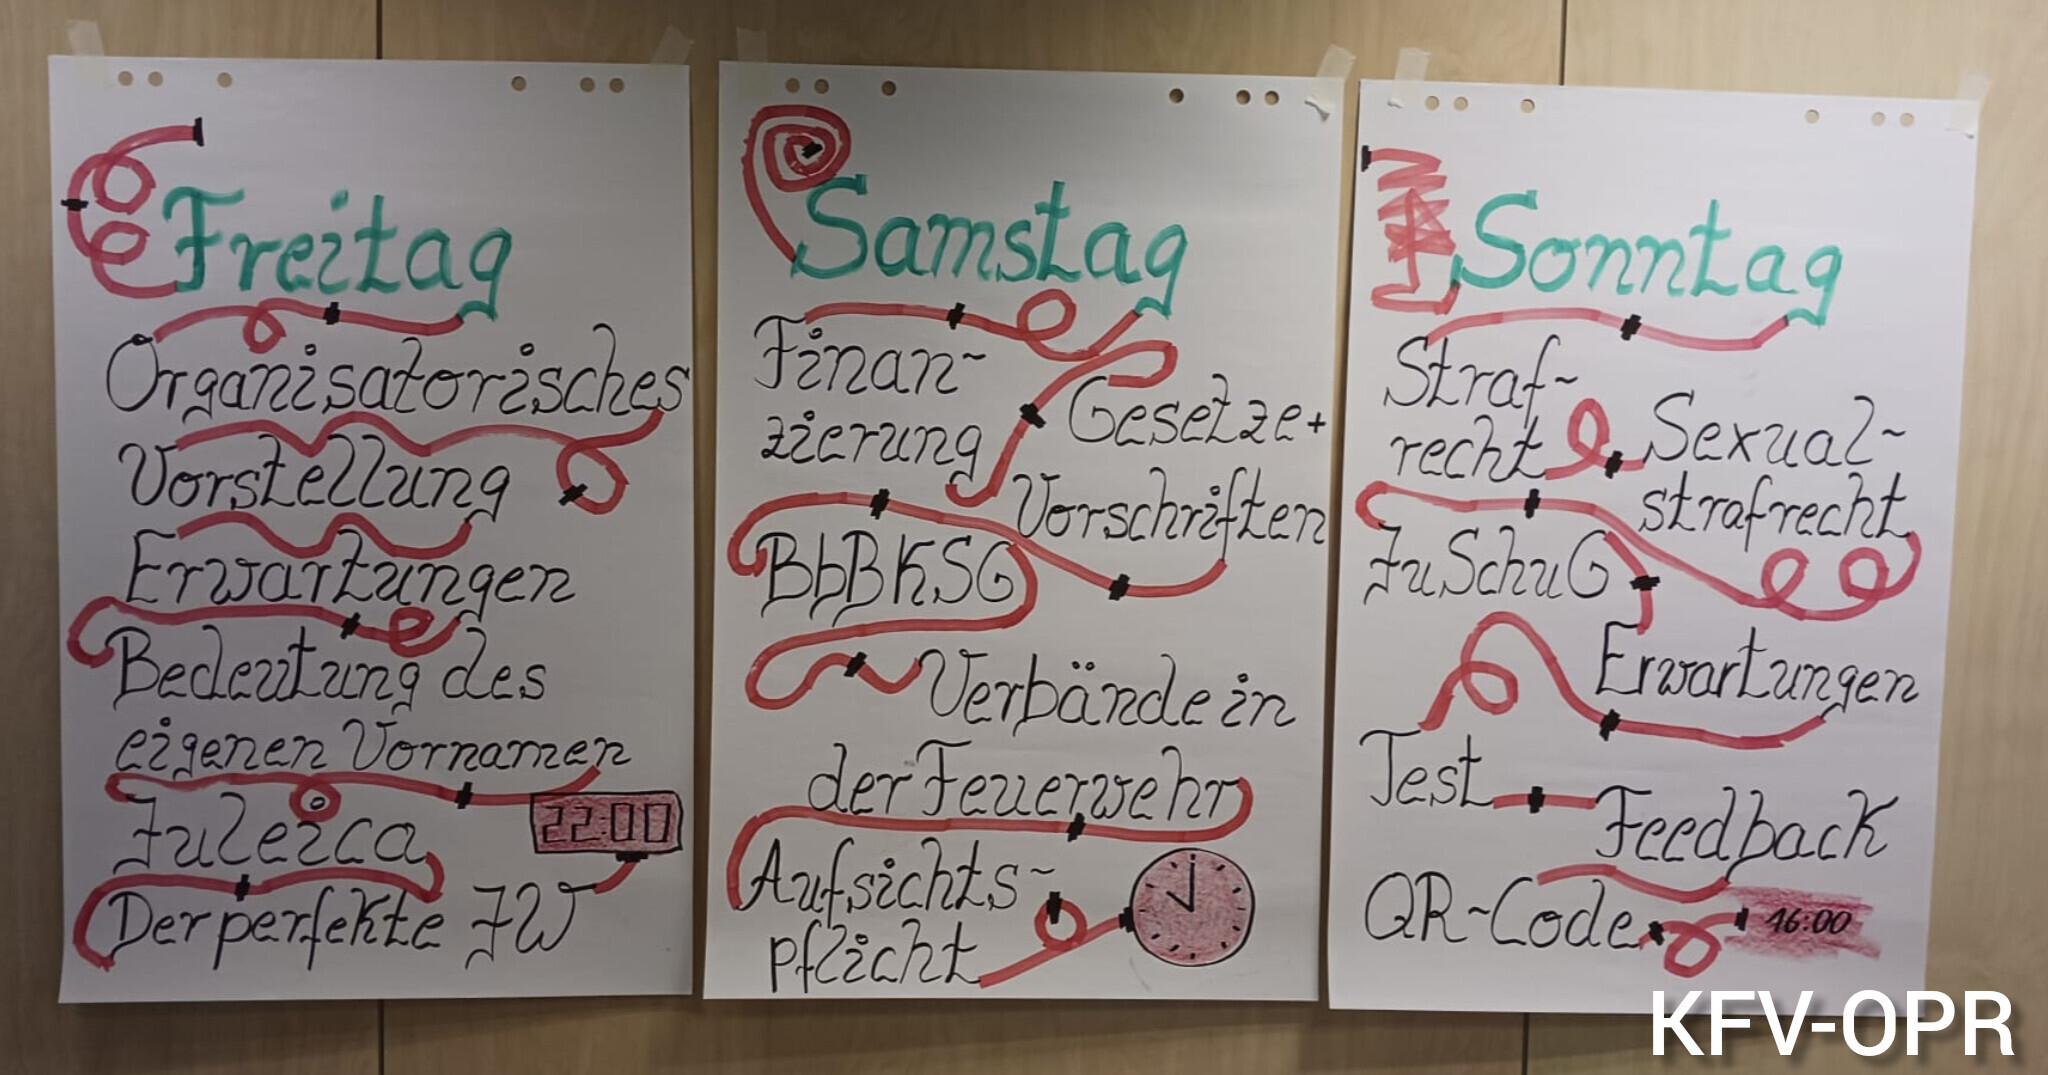 Freitag
Organisatorisches
Vorstellung
Erwartungen
Bedeutung des
eigenen Vornamen
Juleica
22:00
Der perfekte JW
Samstag
Finan~
zierung
Gesetze+
Vorschriften
BbBKSG
Verbände in
der Feuerwehr
Aufsichts~
pflicht
Sonntag
Straf~
recht
Sexual~
strafrecht
JuSchuG
Erwartungen
Test
Feedback
QR~Code
16:00
KFV-OPR